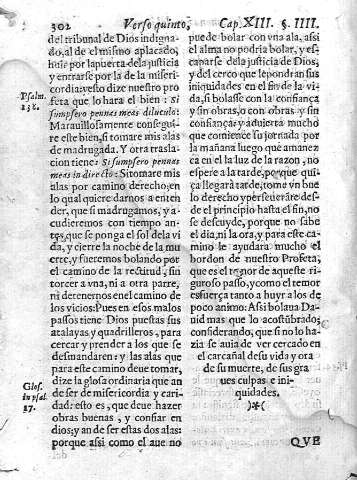 302 Verso quinto, Cap. XIII. §. IIII.
del tribunal de Dios indigna-
do, al de el mismo aplacado,
huir por la puerta de la justicia
y entrarse por la de la miseri-
cordia: y esto dize nuestro pro
feta que lo hara el bien: Si
sumpsero pennas meas diluculo:
Marauillosamente consegui-
re este bien, si tomare mis alas
de madrugada. Y otra trasla-
cion tiene: Si sumpsero pennas
meas in directo: Si tomare mis
alas por camino derecho, en
lo qual quiere darnos a enten
der, que si madrugamos, y a-
cudieremos con tiempo an-
tes, que se ponga el sol de la vi
da, y cierre la noche de la mu
erte, y fueremos bolando por
el camino de la rectitud, sin
torcer a vna, ni a otra parre,
ni detenernos en el camino de
los vicios: Pues en esos malos
passos tiene Dios puestas sus
atalayas y quadrilleros, para
cercar y prender a los que se
desmandaren: y las alas que
para este camino deue tomar,
dize la glosa ordinaria que an
de ser de misericordia y cari-
dad: esto es, que deue hazer
obras buenas, y confiar en
dios; y an de ser estas dos alas:
porque assi como el aue no
Psalm.
138.
Glos.
in psal.
37.
puede bolar con vna ala, assi
el alma no podria bolar, y es-
caparse de la justicia de Dios,
y del cerco que le pondran sus
iniquidades en el fin de la vi-
da, si bolasse con la confiança
y sin obras, o con obras, y sin
confiança: y aduierta mucho
que comience su jornada por
la mañana luego que amanez
ca en el la luz de la razon, no
espere a la tarde, porque qui-
ça llegará tarde, tome vn bue
lo derecho y perseuerare des-
de el principio hasta el fin, no
se descuyde, porque no sabe
el dia, ni la ora, y para este ca-
mino le ayudara mucho el
bordon de nuestro Profeta,
que es el temor de aqueste ri-
guroso passo, y como el temor
esfuerça tanto a huyr a los de
poco animo: Assi bolaua Da-
uid mas que lo acostũbrado;
considerando, que si no lo ha-
zia se auia de ver cercado en
el carcañal de su vida y ora
de su muerte, de sus gra
ues culpas e ini-
quidades.
)*(
QVE